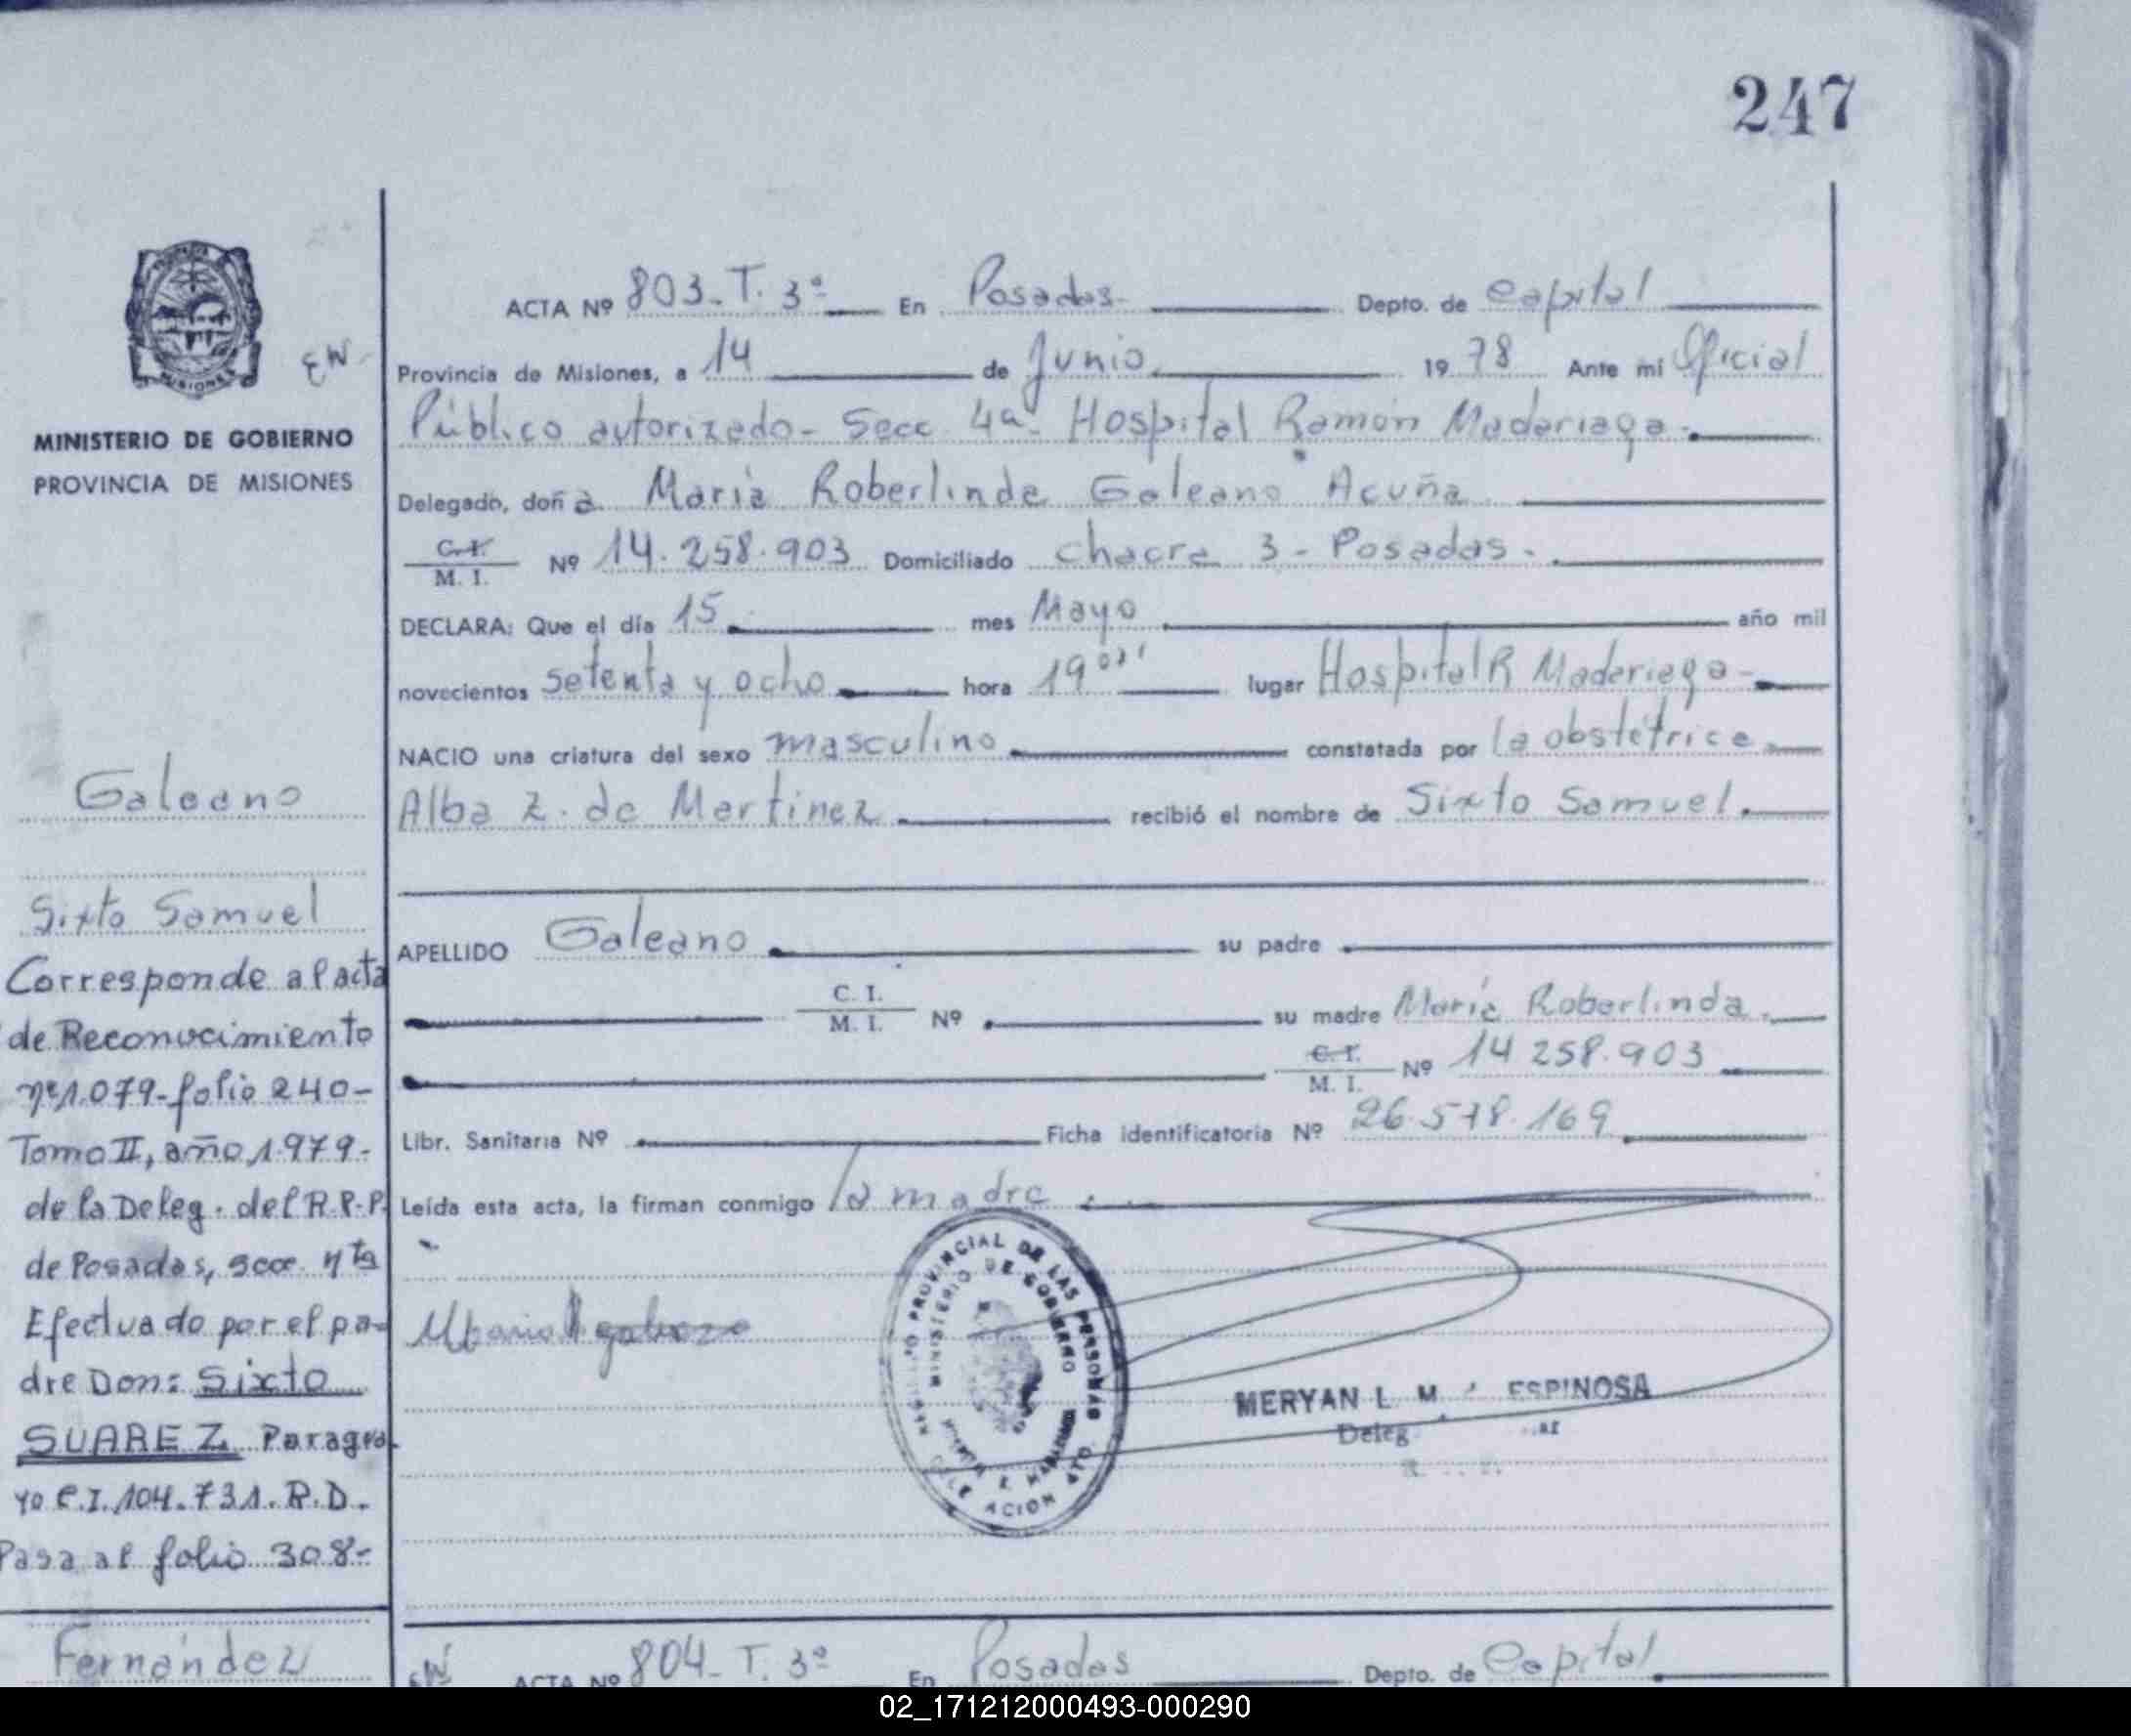 247
MISIONES
EW
MINISTERIO DE GOBIERNO
PROVINCIA DE MISIONES
Galeano
Sixto Samuel
Corresponde al acta
de Reconocimiento
nº 1.079-folio 240-
Tomo II, año 1.979-
de la Deleg. del R.P.P.
de Posadas, secc. 4ta
Efectuado por el pa-
dre Don: Sixto
SUAREZ Paragua
yo C.I. 104.731. R.D.
Pasa al folio 308-
ACTA Nº 803-T. 3º En Posadas- Depto. de Capital
Provincia de Misiones, a 14 de Junio 1978 Ante mi Oficial
Público autorizado- Secc 4a- Hospital Ramón Madariaga.
Delegado, doña María Roberlinda Galeano Acuña
C. I. / M. I. Nº 14.258.903 Domiciliado Chacra 3 - Posadas.
DECLARA: Que el día 15 mes Mayo año mil
novecientos setenta y ocho hora 19 lugar Hospital R Madariaga-
NACIO una criatura del sexo masculino constatada por la obstétrica
Alba Z. de Martinez recibió el nombre de Sixto Samuel.
APELLIDO Galeano su padre
C. I. / M. I. Nº su madre María Roberlinda.
C. I. / M. I. Nº 14 258.903
Libr. Sanitaria Nº Ficha identificatoria Nº 26.578.169
Leída esta acta, la firman conmigo la madre
PROVINCIAL DE LAS PERSONAS
MINISTERIO DE GOBIERNO
MERYAN L. M ESPINOSA
Deleg
Fernández
EW ACTA Nº 804- T. 3º En Posadas Depto. de Capital
02_171212000493-000290